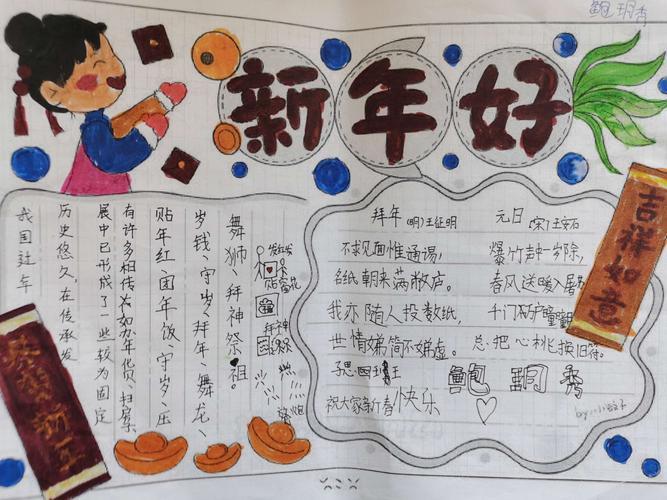 鲍玥秀
新年好
吉祥如意
我国过年
历史悠久,在传承发
展中已形成了一些较为固定
有许多相传 如办年货、扫房
贴年红、团年饭、守岁、压
岁钱、守岁、拜年、舞龙、
舞狮、拜神祭祖。
发红包
贴窗花
拜神
拜年 (明)王征明
不求见面惟通谒,
名纸朝来满敝庐。
我亦随人投数纸,
世情娣简不娣虚。
元日 (宋)王安石
爆竹声中一岁除,
春风送暖入屠苏
千门万户曈曈
总把心桃换旧符。
鲍玥秀
祝大家新春快乐
新年